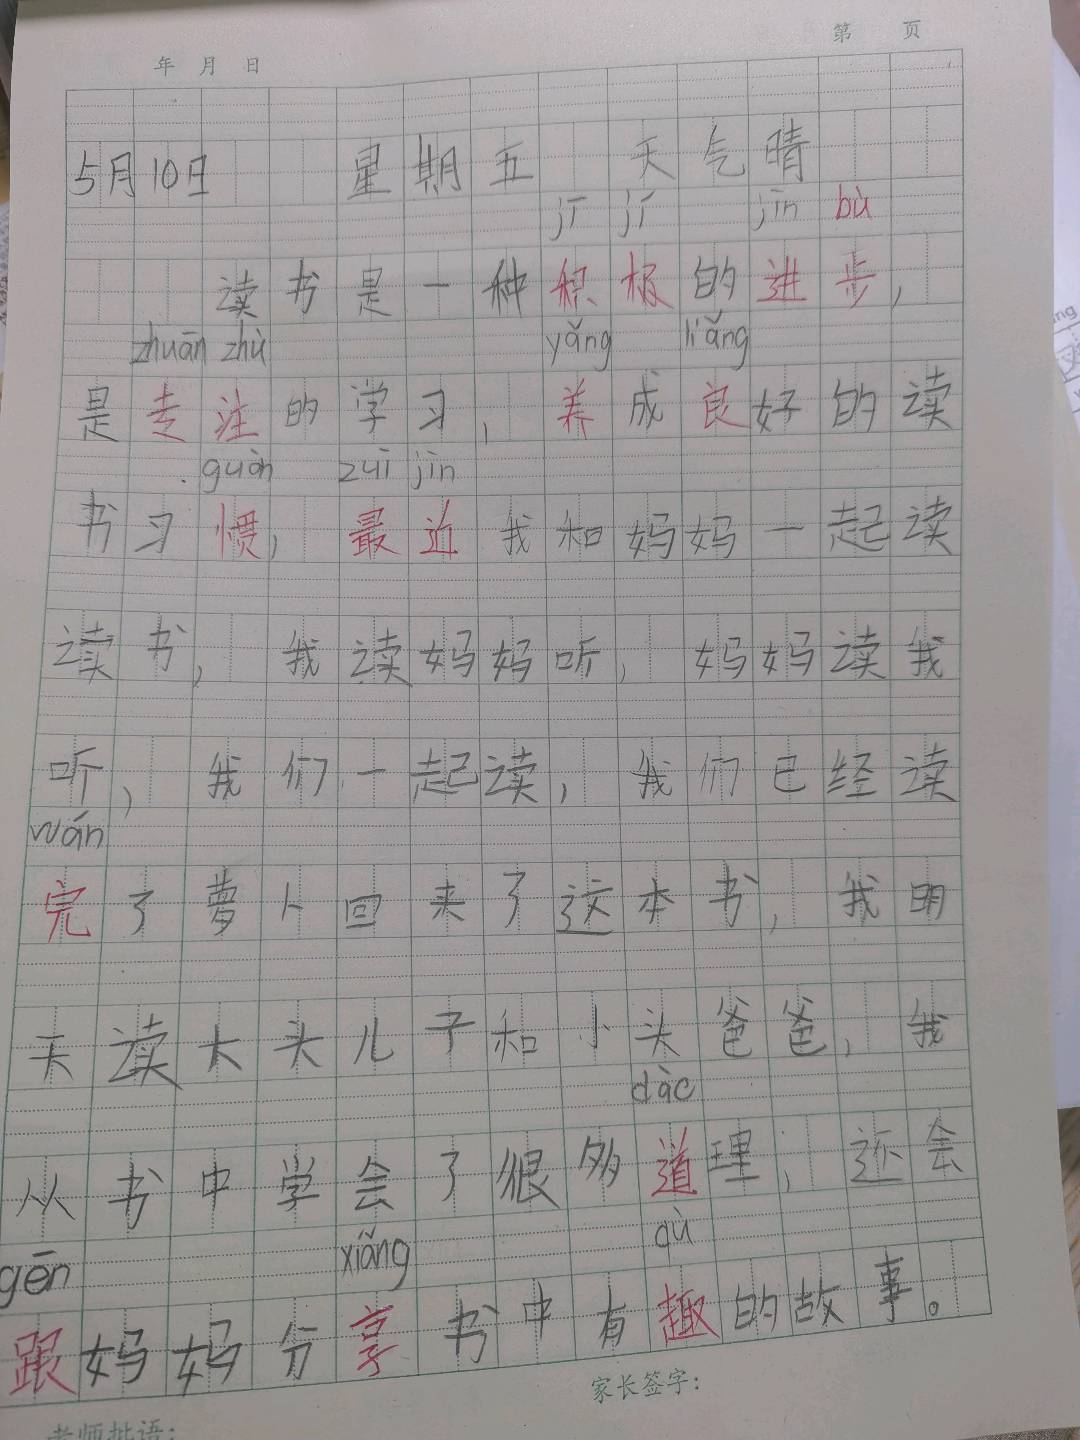 第 页
年 月 日
5月10日 星期五 天气晴
jī jí jìn bù
读书是一种积极的进步,
zhuān zhù yǎng liǎng
是专注的学习,养成良好的读
guàn zuì jìn
书习惯,最近我和妈妈一起读
读书,我读妈妈听,妈妈读我
听,我们一起读,我们已经读
wán
完了萝卜回来了这本书,我明
天读大头儿子和小头爸爸,我
dào
从书中学会了很多道理,还会
gēn xiǎng qù
跟妈妈分享书中有趣的故事。
家长签字:
老师批语: